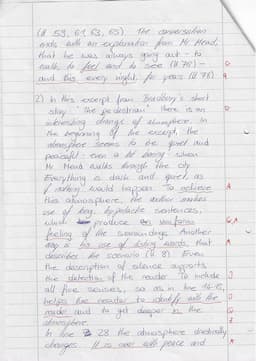 (ll 59, 61, 63, 65) The conversation
ends with an explanation from Mr Mead,
that he was always going out - to
walk, to feel and to see (ll 78) -
and this every night, for years (ll 78)
2) In this excerpt from Bradbury's short
story "The pedestrian" there is an
interesting change of atmosphere. In
the beginning of the excerpt, the
atmosphere seems to be quiet and
peaceful - even a bit boring - when
Mr Mead walks through the city.
Everything is dark and quiet, as
if nothing would happen. To achieve
this atmosphere, the author makes
use of long, hypotactic sentences,
which produce an
feeling of the surroundings. Another
is his use of words that
describes the scenario (ll 8). Even
the description of silence supports
the of the reader. To include
all five senses, so as in line 14-15,
helps the reader to identify with the
and to get deeper in the
atmosphere.
In line 28 the atmosphere drastically
changes. It is over with peace and
A
A